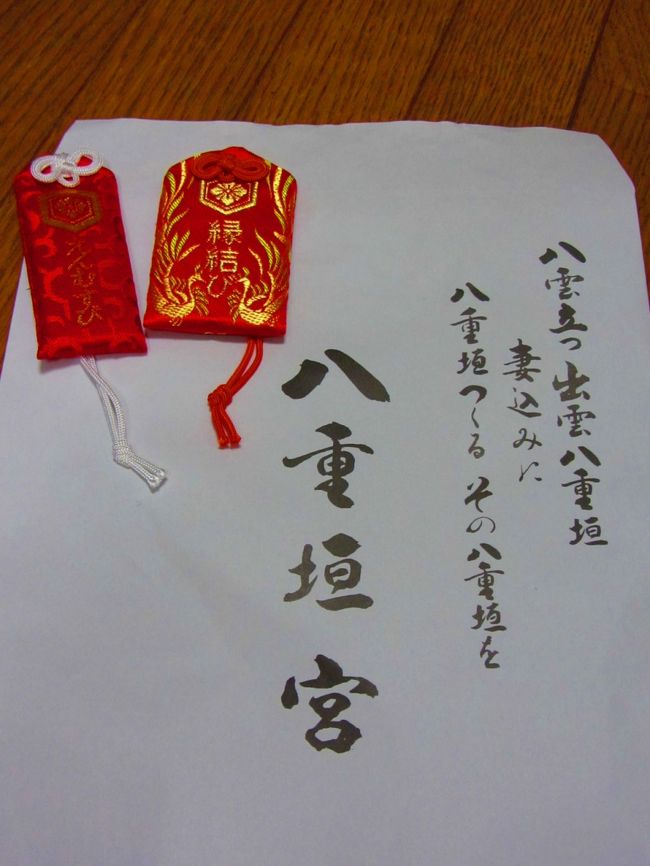 八雲立つ 出雲八重垣
妻込みに
八重垣つくる その八重垣を
八重垣宮
縁結び
えんむすび